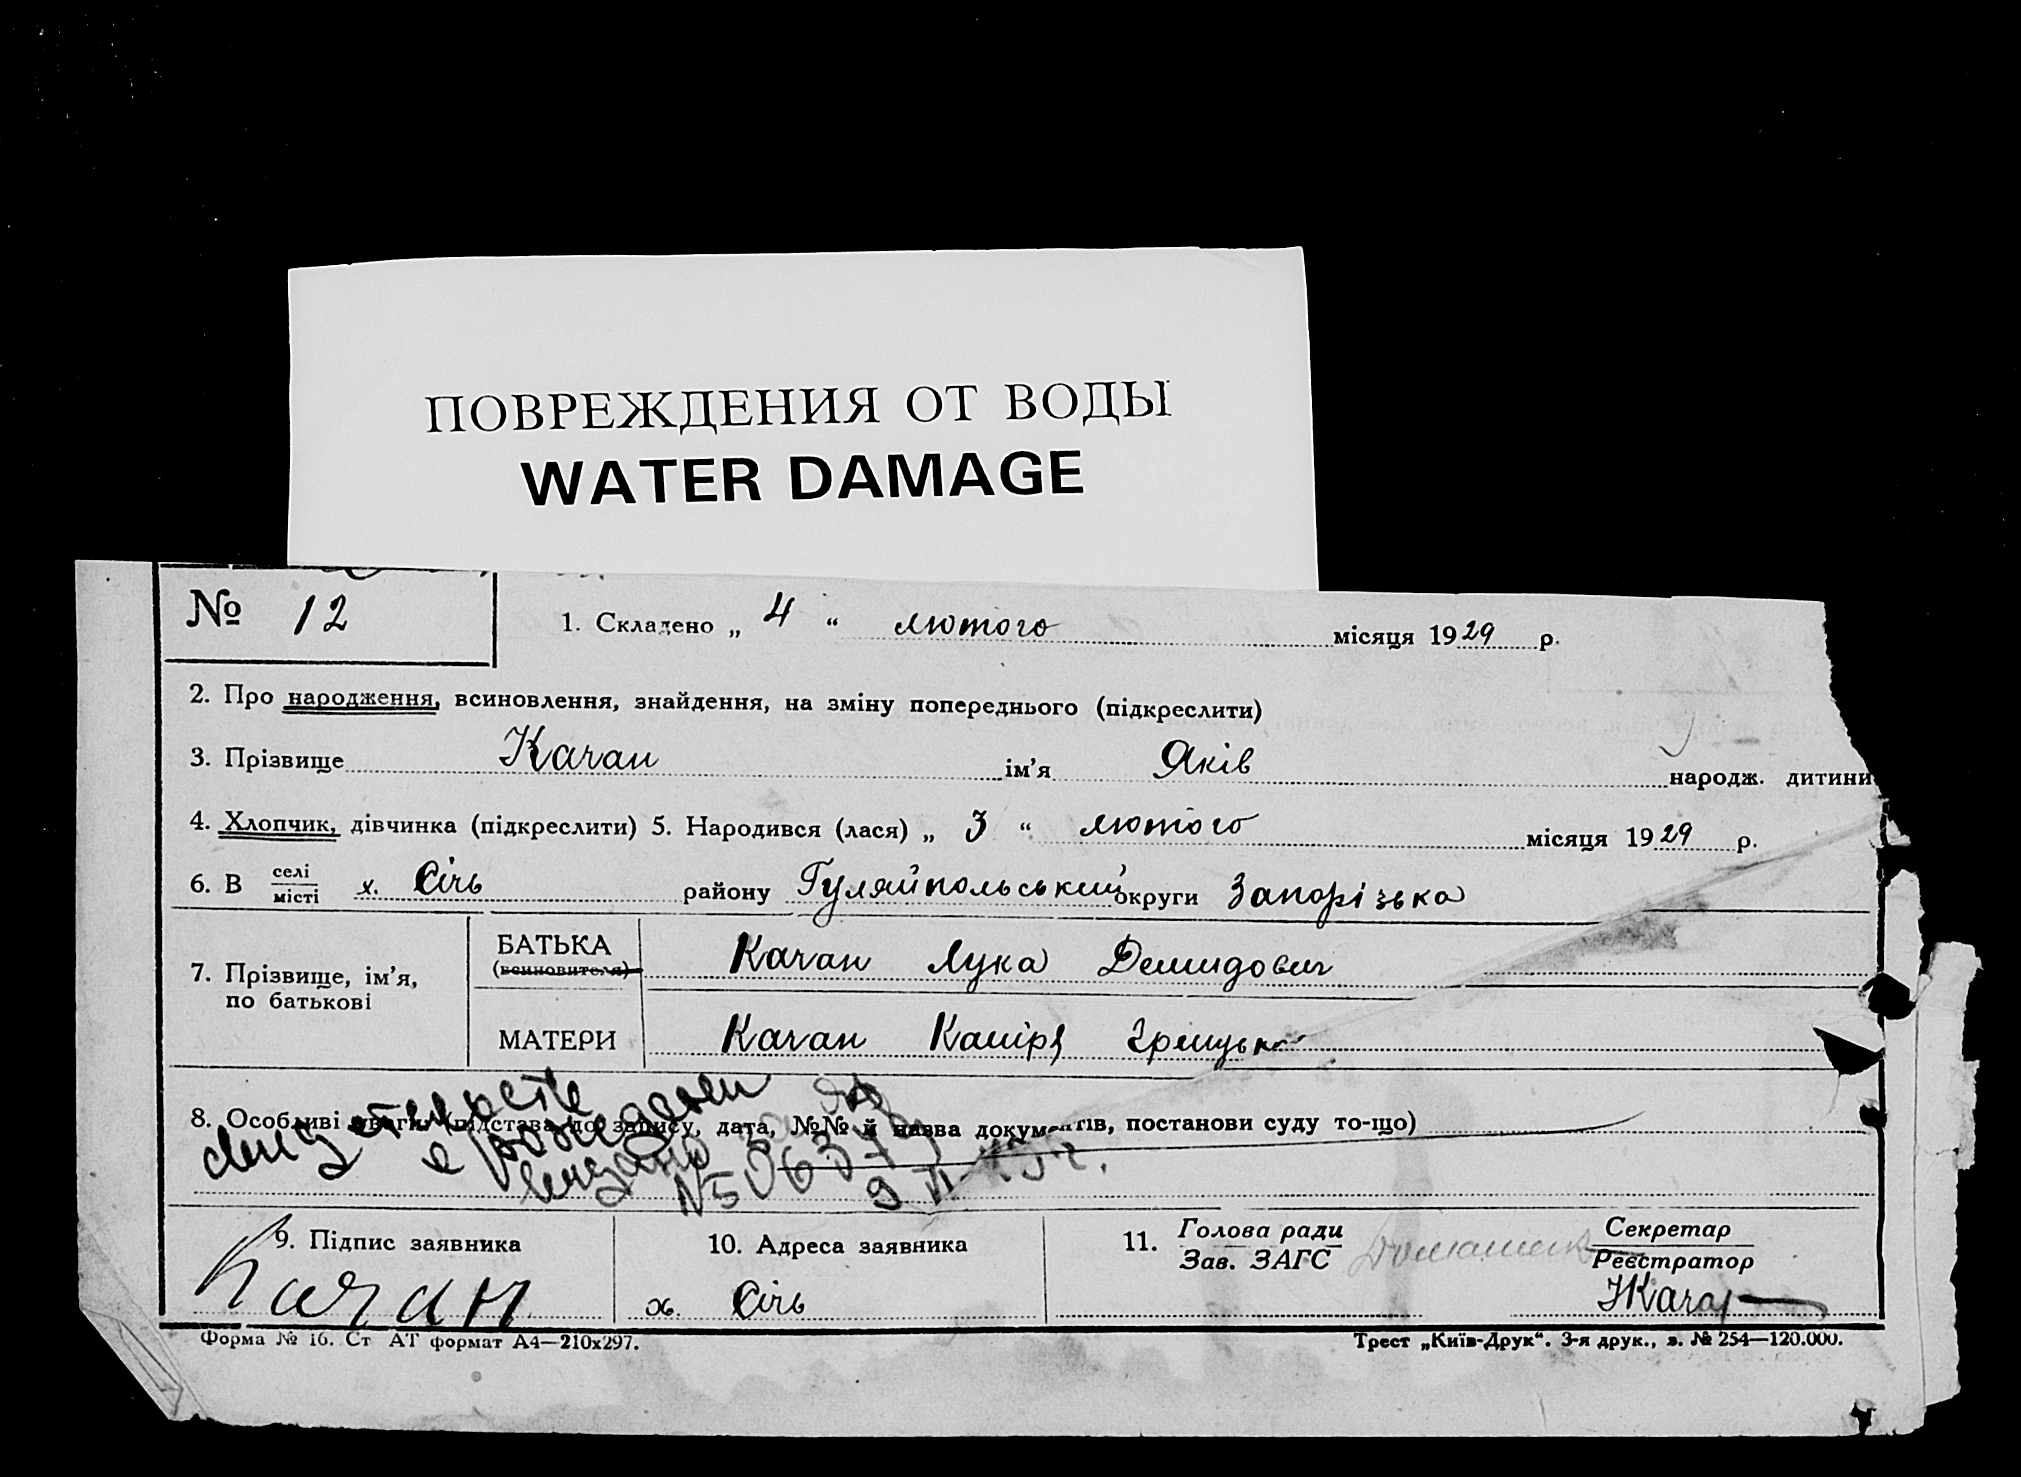 ПОВРЕЖДЕНИЯ ОТ ВОДЫ
WATER DAMAGE
№ 12
1. Складено „ 4 “ лютого місяця 1929 р.
2. Про народження, всиновлення, знайдення, на зміну попереднього (підкреслити)
3. Прізвище Качан ім’я Яків народж. дитини
4. Хлопчик, дівчинка (підкреслити) 5. Народився (лася) „ 3 “ лютого місяця 1929 р.
6. В селі/місті х. Січь району Гуляйпольський округи Запорізька
7. Прізвище, ім’я, по батькові
БАТЬКА (всиновителя) Качан Лука Демидович
МАТЕРИ Качан
8. Особливі уваги (підстава до запису, дата, №№ й назва документів, постанови суду то-що)
о рождении
выдано
9. Підпис заявника
Качан
10. Адреса заявника
х. Січь
11. Голова ради
Зав. ЗАГС
Секретар
Реєстратор
Форма № 16. Ст АТ формат А4—210х297.
Трест „Київ-Друк“. 3-я друк., з. № 254—120.000.